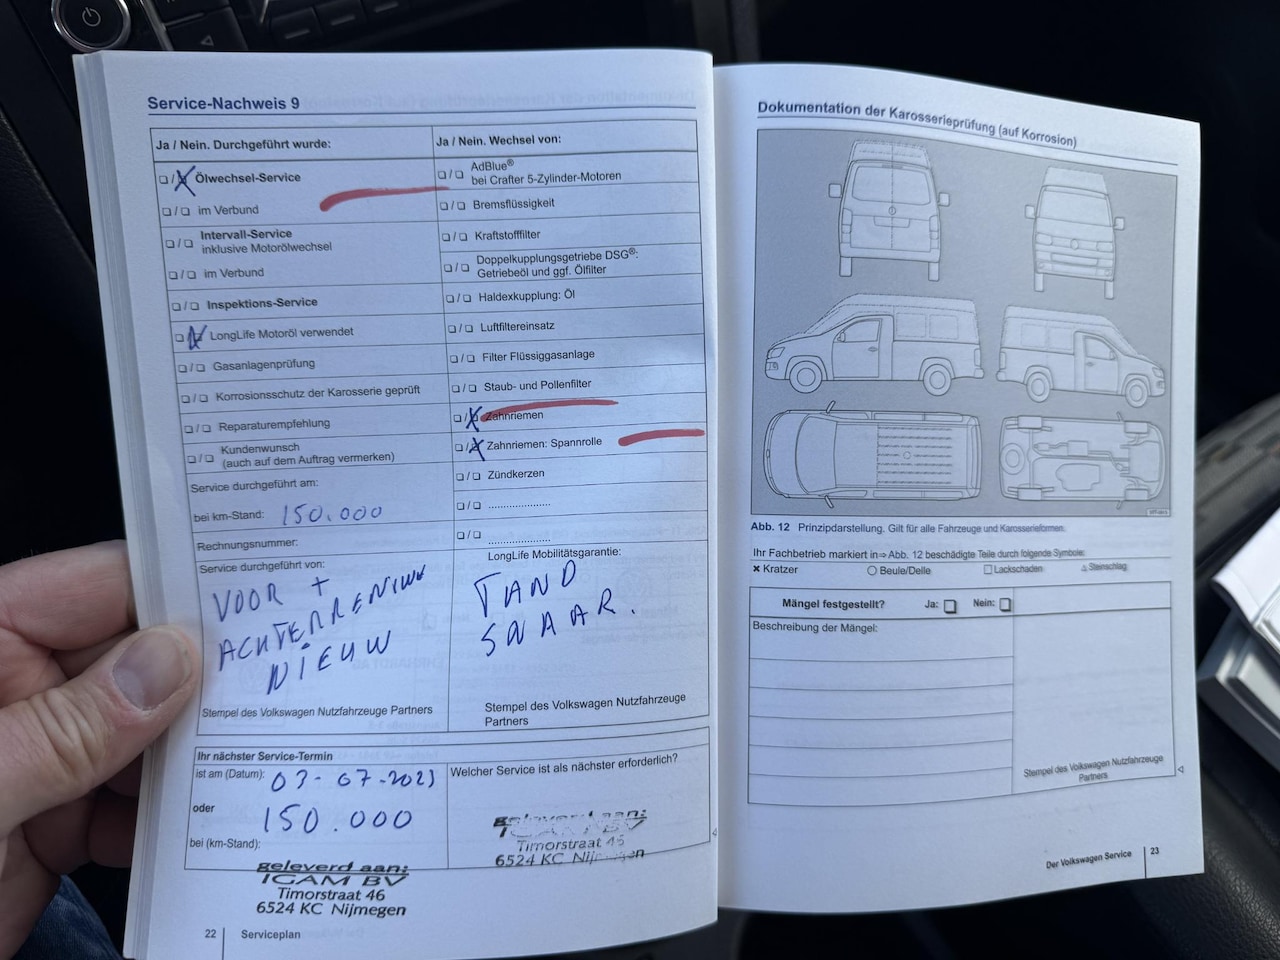 Service-Nachweis 9
Ja / Nein. Durchgeführt wurde:
❏ / ❏ Ölwechsel-Service
❏ / ❏ im Verbund
❏ / ❏ Intervall-Service
inklusive Motorölwechsel
❏ / ❏ im Verbund
❏ / ❏ Inspektions-Service
❏ / ❏ LongLife Motoröl verwendet
❏ / ❏ Gasanlagenprüfung
❏ / ❏ Korrosionsschutz der Karosserie geprüft
❏ / ❏ Reparaturempfehlung
❏ / ❏ Kundenwunsch
(auch auf dem Auftrag vermerken)
Service durchgeführt am:
bei km-Stand: 150.000
Rechnungsnummer:
Service durchgeführt von:
VOOR +
ACHTERREMMEN
NIEUW
Stempel des Volkswagen Nutzfahrzeuge Partners
Ja / Nein. Wechsel von:
❏ / ❏ AdBlue®
bei Crafter 5-Zylinder-Motoren
❏ / ❏ Bremsflüssigkeit
❏ / ❏ Kraftstofffilter
❏ / ❏ Doppelkupplungsgetriebe DSG®:
Getriebeöl und ggf. Ölfilter
❏ / ❏ Haldexkupplung: Öl
❏ / ❏ Luftfiltereinsatz
❏ / ❏ Filter Flüssiggasanlage
❏ / ❏ Staub- und Pollenfilter
❏ / ❏ Zahnriemen
❏ / ❏ Zahnriemen: Spannrolle
❏ / ❏ Zündkerzen
❏ / ❏ .....................
❏ / ❏ .....................
LongLife Mobilitätsgarantie:
TAND
SNAAR.
Stempel des Volkswagen Nutzfahrzeuge
Partners
Ihr nächster Service-Termin
ist am (Datum): 03-07-2023
oder
150.000
bei (km-Stand):
geleverd aan:
IGAM BV
Timorstraat 46
6524 KC Nijmegen
Welcher Service ist als nächster erforderlich?
geleverd aan:
IGAM BV
Timorstraat 46
6524 KC Nijmegen
22 Serviceplan
Dokumentation der Karosserieprüfung (auf Korrosion)
Abb. 12 Prinzipdarstellung. Gilt für alle Fahrzeuge und Karosserieformen.
Ihr Fachbetrieb markiert in ⇒ Abb. 12 beschädigte Teile durch folgende Symbole:
✕ Kratzer ○ Beule/Delle ☐ Lackschaden △ Steinschlag
Mängel festgestellt? Ja: ❏ Nein: ❏
Beschreibung der Mängel:
Stempel des Volkswagen Nutzfahrzeuge
Partners
Der Volkswagen Service 23